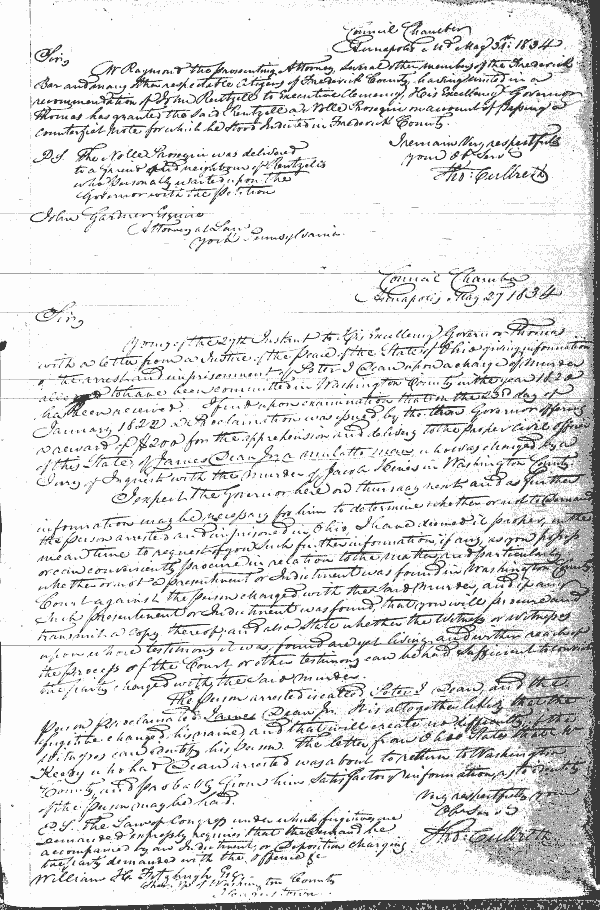 Council Chamber
Annapolis Md May 31st 1834
Sir,
Mr Raymond the prosecuting Attorney, several other members of the Frederick
Bar and many other respectable citizens of Frederick County, having united in a
recommendation of John Rentzell to Executive clemency, His Excellency Governor
Thomas has granted the said Rentzell a Nolle Prosequi on account of passing a
counterfeit note for which he stood Indicted in Frederick County.
I remain Very respectfully
your Ob Serv
Tho: Culbreth
P.S. The Nolle Prosequi was delivered
to a friend and neighbour of Rentzell's
who personally waited upon the
Governor with the petition
John Gardner Esquire
Attorney at Law
York Pennsylvania
Council Chamber
Annapolis May 27 1834
Sir,
Yours of the 27th Instant to His Excellency Governor Thomas
with a letter from a Justice of the Peace of the State of Ohio giving information
of the arrest and imprisonment of Peter J Dean upon a charge of murder
alleged to have been committed in Washington County in the year 1820
has been received. I find upon examination that on the 23rd day of
January 1822 a Proclamation was issued by the then Governor offering
a reward of $200 for the apprehension and delivery to the proper civil officer
of this State, of James Dean Jr. a mulatto man, who was charged by a
Jury of Inquest with the murder of Jacob Hines in Washington County.
I expect the Governor here on thursday next and as further
information may be necessary for him to determine whether or not to demand
the person arrested and imprisoned in Ohio, I have deemed it proper, in the
mean time to request of you such further information, if any, as you possess
or can conveniently procure in relation to the matter, and particularly
whether or not a presentment or Indictment was found in Washington County
Court against the person charged with the said murder, and if any
such presentment or Indictment was found, that you will procure and
transmit a copy thereof, and also state whether the Witness or Witnesses
upon whose testimony it was found are yet living and within reach of
the process of the Court or other testimony can be had sufficient to convict
the party charged with the said murder.
The person arrested is called Peter J Dean, and the
person proclaimed James Dean Jr. It is altogether likely that the
fugitive changed his name, and that will create no difficulty if the
witnesses can identify his person. The letter from Ohio states that
Keedy who had Dean arrested was about to return to Washington
County, and probably from him satisfactory information, as to identity
of the person may be had.
Very respectfully your
Ob Serv
Tho: Culbreth
P.S. The Law of Congress under which fugitives are
demanded expressly requires that the demand be
accompanied by an Indictment, or Deposition charging
the party demanded with the offence &c
William H. Fitzhugh Esq.
Sheriff of Washington County
Hagerstown